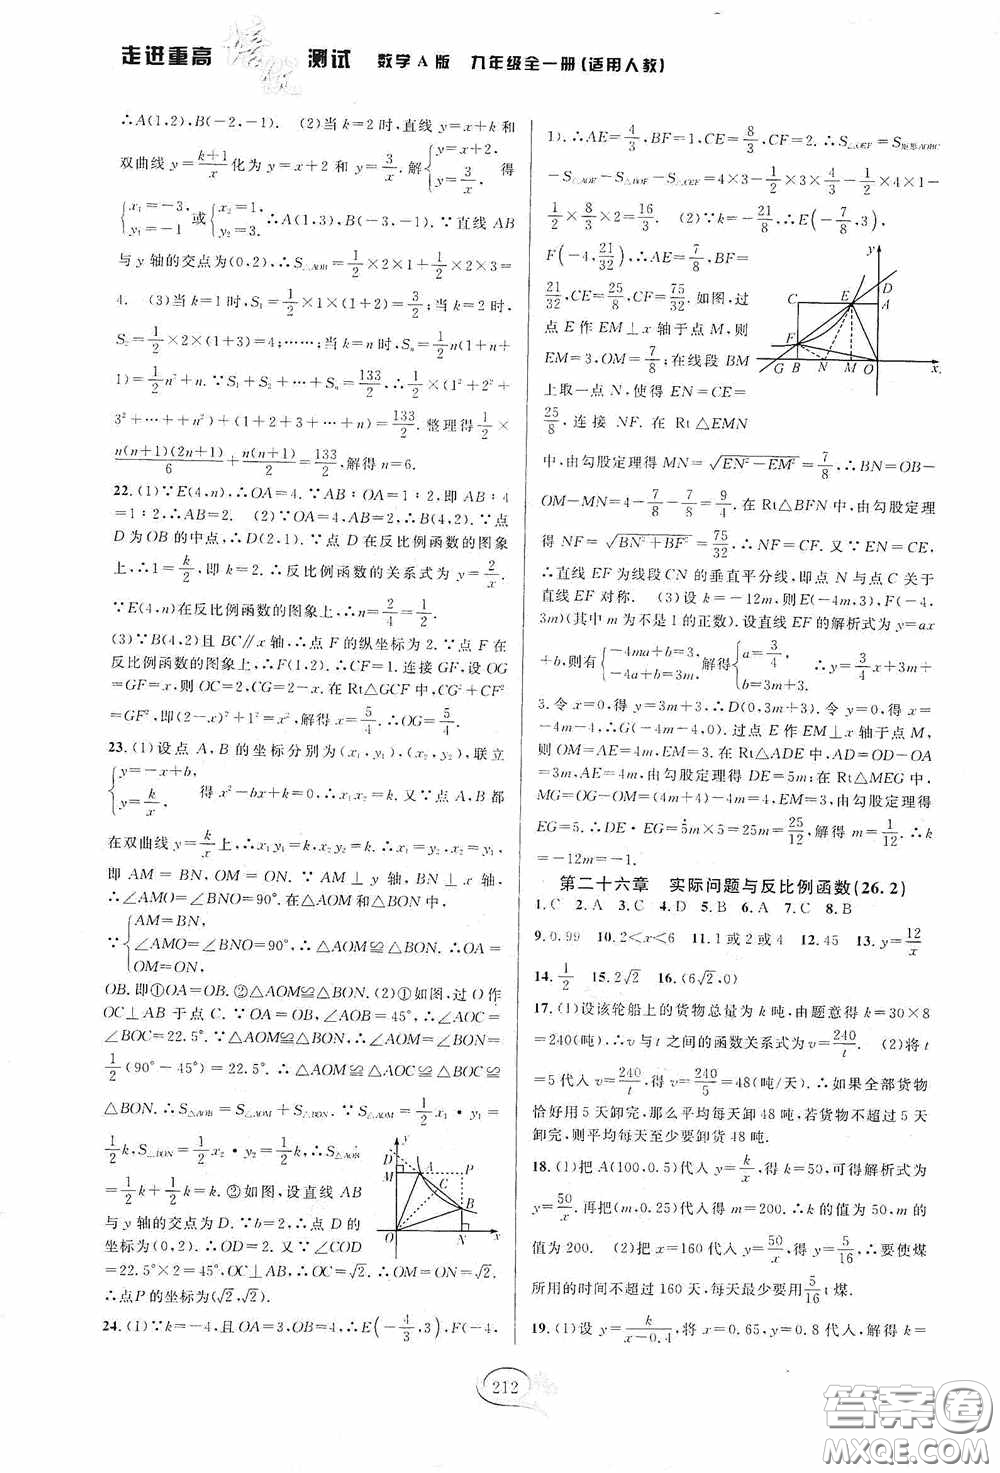 走进重高 培优 测试 数学A版 九年级全一册(适用人教)
∴A(1,2),B(-2,-1). (2)当k=2时,直线y=x+k和
双曲线y=\frac{k+1}{x}化为y=x+2和y=\frac{3}{x}.解{y=x+2, y=\frac{3}{x}, 得
{x₁=-3, y₁=-1 或{x₂=1, y₂=3. ∴A(1,3),B(-3,-1).∵直线AB
与y轴的交点为(0,2),∴S△AOB=\frac{1}{2}×2×1+\frac{1}{2}×2×3=
4. (3)当k=1时,S₁=\frac{1}{2}×1×(1+2)=\frac{3}{2};当k=2时,
S₂=\frac{1}{2}×2×(1+3)=4;……;当k=n时,Sₙ=\frac{1}{2}n(1+n+
1)=\frac{1}{2}n²+n.∵S₁+S₂+…+Sₙ=\frac{133}{2},∴\frac{1}{2}×(1²+2²+
3²+…+n²)+(1+2+3+…+n)=\frac{133}{2}.整理得\frac{1}{2}×
\frac{n(n+1)(2n+1)}{6}+\frac{n(n+1)}{2}=\frac{133}{2},解得n=6.
22.(1)∵E(4,n),∴OA=4.∵AB:OA=1:2,即AB:4
=1:2,∴AB=2. (2)∵OA=4,AB=2,∴B(4,2).∵点
D为OB的中点,∴D(2,1).∵点D在反比例函数的图象
上,∴1=\frac{k}{2},∴k=2.∴反比例函数的关系式为y=\frac{2}{x}.
∵E(4,n)在反比例函数的图象上,∴n=\frac{2}{4}=\frac{1}{2}.
(3)∵B(4,2)且BC∥x轴,∴点F的纵坐标为2.∵点F在
反比例函数的图象上,∴F(1,2).∴CF=1.连接GF,设OG
=GF=x,则OC=2,CG=2-x.在Rt△GCF中,CG²+CF²=
GF²,即(2-x)²+1²=x²,解得x=\frac{5}{4}.∴OG=\frac{5}{4}.
23.(1)设点A,B的坐标分别为(x₁,y₁),(x₂,y₂),联立
{y=-x+b, y=\frac{k}{x} 得x²-bx+k=0,∴x₁x₂=k.又∵点A,B都
在双曲线y=\frac{k}{x}上,∴x₁y₁=k,x₂y₂=k,∴x₂=y₁,x₁=y₂.
即AM=BN,OM=ON,∵AM⊥y轴,BN⊥x轴,
∴∠AMO=∠BNO=90°.在△AOM和△BON中,
∵{AM=BN, ∠AMO=∠BNO=90°, OM=ON, ∴△AOM≌△BON.∴OA=
OB.即①OA=OB.②△AOM≌△BON.(2)①如图,过O作
OC⊥AB于点C.∵OA=OB,∠AOB=45°,∴∠AOC=
∠BOC=22.5°.∵△AOM≌△BON,∴∠AOM=∠BON=
\frac{1}{2}(90°-45°)=22.5°.∴△AOM≌△AOC≌△BOC≌
△BON.∴S△AOB=S△AOM+S△BON.∵S△AOM=\frac{1}{2}x₁·y₁=
\frac{1}{2}k,S△BON=\frac{1}{2}x₂·y₂=\frac{1}{2}k,∴S△AOB
=\frac{1}{2}k+\frac{1}{2}k=k.②如图,设直线AB
与y轴的交点为D.∵b=2,∴点D的
坐标为(0,2).∴OD=2.又∵∠COD
=22.5°×2=45°,OC⊥AB,∴OC=√2.∴OM=ON=√2.
∴点P的坐标为(√2,√2).
y D M A P C B O N x
24.(1)∵k=-4,且OA=3,OB=4,∴E(-\frac{4}{3},3),F(-4,
1).∴AE=\frac{4}{3},BF=1,CE=\frac{8}{3},CF=2.∴S△OEF=S矩形AOBC
-S△AOE-S△BOF-S△CEF=4×3-\frac{1}{2}×3×\frac{4}{3}-\frac{1}{2}×4×1-
\frac{1}{2}×\frac{8}{3}×2=\frac{16}{3}. (2)∵k=-\frac{21}{8},∴E(-\frac{7}{8},3),
F(-4,\frac{21}{32}).∴AE=\frac{7}{8},BF=
\frac{21}{32},CE=\frac{25}{8},CF=\frac{75}{32}.如图,过
点E作EM⊥x轴于点M,则
EM=3,OM=\frac{7}{8};在线段BM
上取一点N,使得EN=CE=
\frac{25}{8},连接NF.在Rt△EMN
y D C E A F G B N M O x
中,由勾股定理得MN=√(EN²-EM²)=\frac{7}{8},∴BN=OB-
OM-MN=4-\frac{7}{8}-\frac{7}{8}=\frac{9}{4}.在Rt△BFN中,由勾股定理
得NF=√(BN²+BF²)=\frac{75}{32}.∴NF=CF.又∵EN=CE,
∴直线EF为线段CN的垂直平分线,即点N与点C关于
直线EF对称. (3)设k=-12m,则E(-4m,3),F(-4,
3m)(其中m为不是1的正数).设直线EF的解析式为y=ax
+b,则有{-4ma+b=3, -4a+b=3m, 解得{a=\frac{3}{4} b=3m+3. ∴y=\frac{3}{4}x+3m+
3.令x=0,得y=3m+3,∴D(0,3m+3).令y=0,得x=
-4m-4,∴G(-4m-4,0).过点E作EM⊥x轴于点M,
则OM=AE=4m,EM=3.在Rt△ADE中,AD=OD-OA
=3m,AE=4m,由勾股定理得DE=5m;在Rt△MEG中,
MG=OG-OM=(4m+4)-4m=4,EM=3,由勾股定理得
EG=5.∴DE·EG=5m×5=25m=\frac{25}{12},解得m=\frac{1}{12}.∴k
=-12m=-1.
第二十六章 实际问题与反比例函数(26.2)
1.C 2.A 3.C 4.D 5.B 6.A 7.C 8.B
9.0.99 10.2<x<6 11.1或2或4 12.45 13.y=\frac{12}{x}
14.\frac{1}{2} 15.2√2 16.(6√2,0)
17.(1)设该轮船上的货物总量为k吨,由题意得k=30×8
=240(吨),∴v与t之间的函数关系式为v=\frac{240}{t}. (2)将t
=5代入v=\frac{240}{t},得v=\frac{240}{5}=48(吨/天).∴如果全部货物
恰好用5天卸完,那么平均每天卸48吨,若货物不超过5天
卸完,则平均每天至少要卸货48吨.
18.(1)把A(100,0.5)代入y=\frac{k}{x},得k=50,可得解析式为
y=\frac{50}{x}.再把(m,0.25)代入得m=200.∴k的值为50,m的
值为200. (2)把x=160代入y=\frac{50}{x},得y=\frac{5}{16},∴要使煤
所用的时间不超过160天,每天最少要用\frac{5}{16}t煤.
19.(1)设y=\frac{k}{x-0.4},将x=0.65,y=0.8代入,解得k=
212
答案圈
MXQE.COM